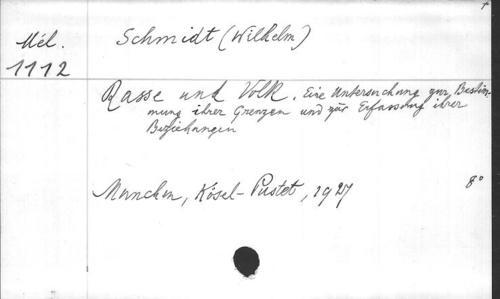 Mél.
1112
Schmidt (Wilhelm)
Rasse und Volk. Eine Untersuchung zur Bestim-
mung ihrer Grenzen und zür Erfassung ihrer
Beziehungen
Munchen, Kösel-Pustet, 1927
8°